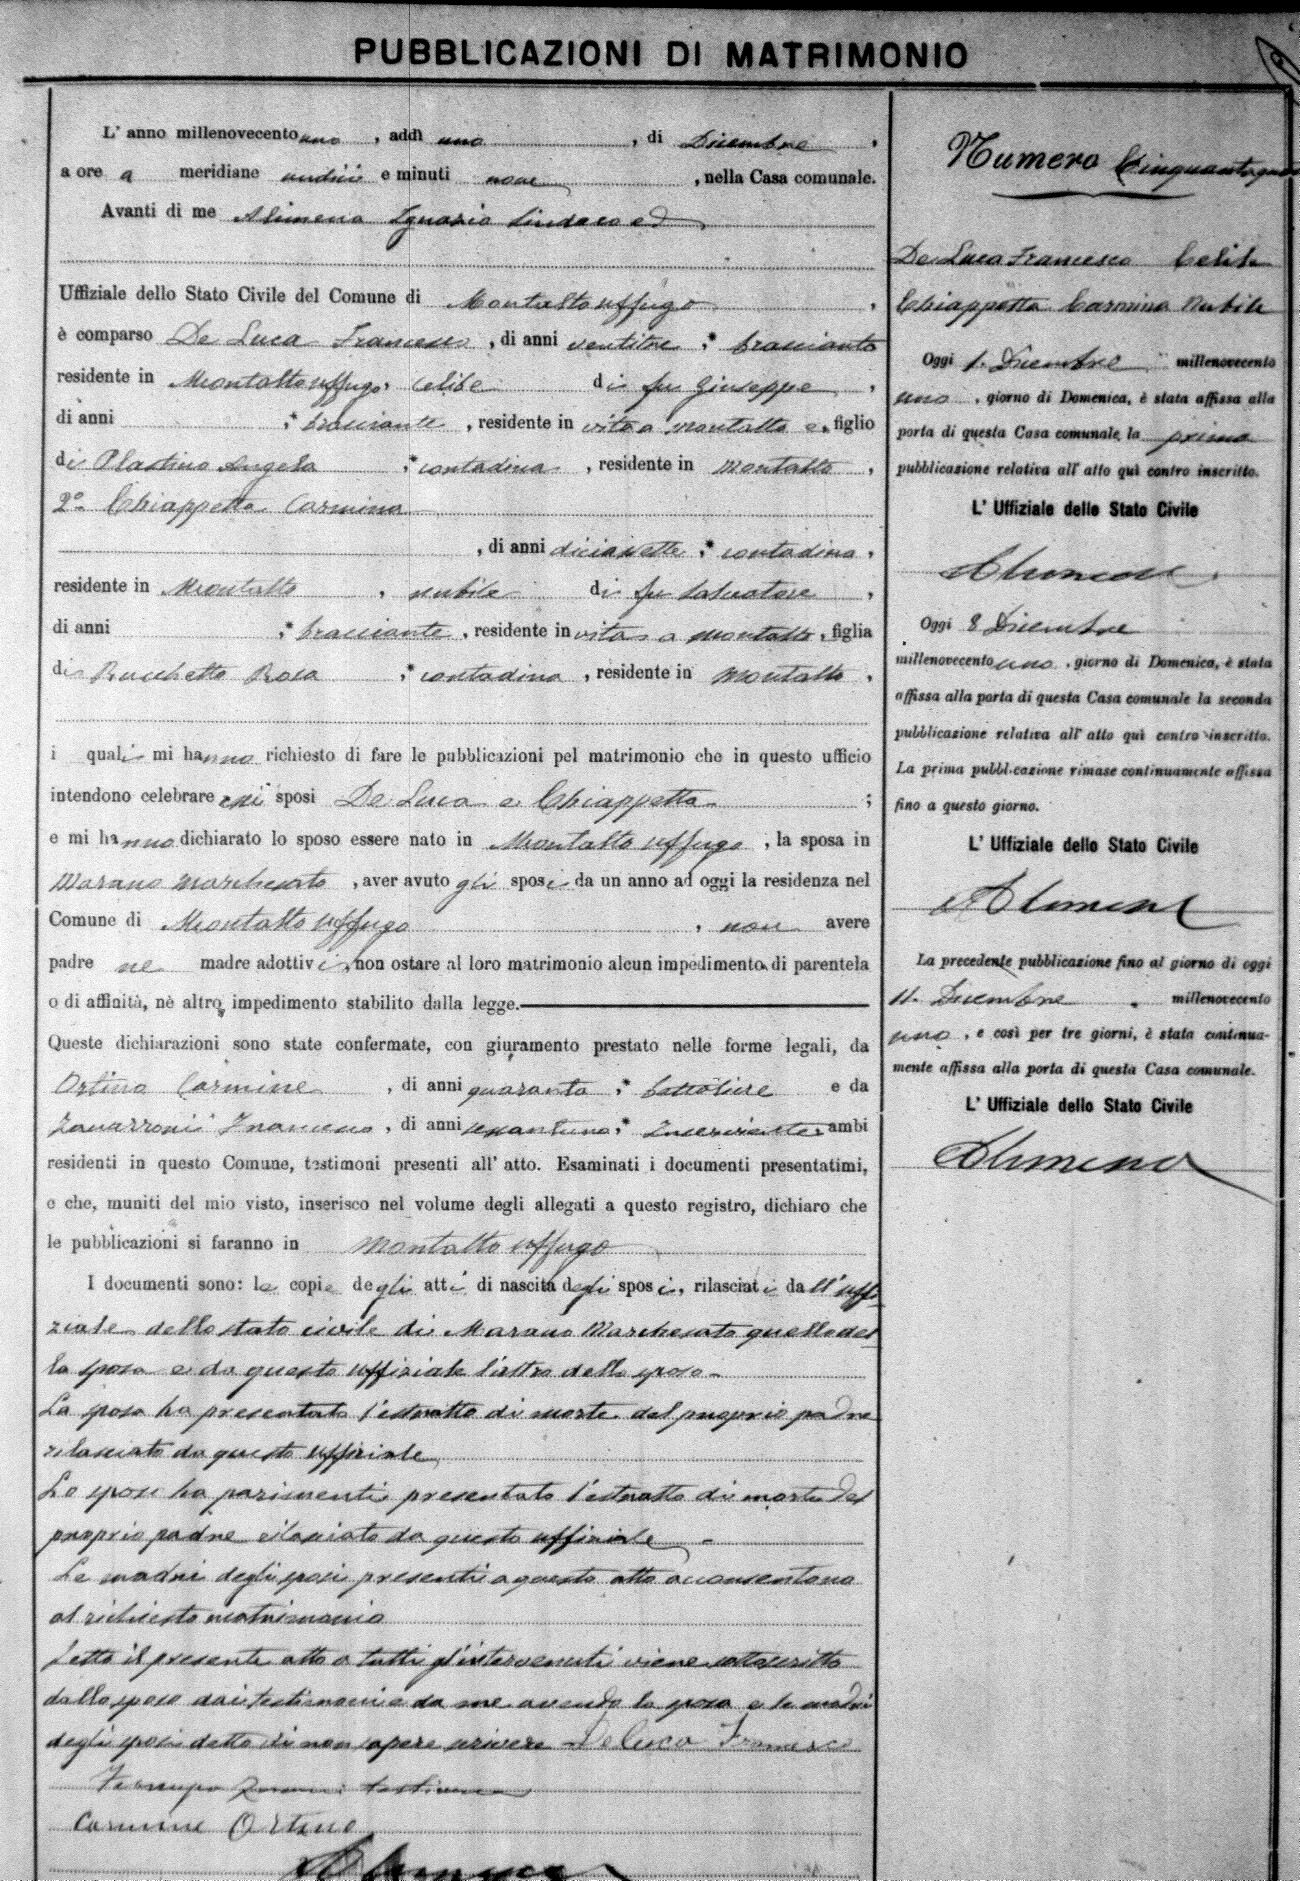 PUBBLICAZIONI DI MATRIMONIO
L' anno millenovecento uno, addì uno, di Dicembre,
a ore a meridiane undici e minuti nove, nella Casa comunale.
Avanti di me Alimena Ignazio Sindaco ed
Uffiziale dello Stato Civile del Comune di Montalto Uffugo,
è comparso De Luca Francesco, di anni ventitre, bracciante
residente in Montalto Uffugo, celibe di fu Giuseppe,
di anni ; bracciante, residente in vita a Montalto e, figlio
di Plastino Angela ; contadina, residente in Montalto,
2º Chiappetta Carmina
, di anni diciasette ; contadina,
residente in Montalto, nubile di fu Salvatore,
di anni ; bracciante, residente in vita a Montalto, figlia
di Rocchetto Rosa ; contadina, residente in Montalto,
i quali mi hanno richiesto di fare le pubblicazioni pel matrimonio che in questo ufficio
intendono celebrare essi sposi De Luca e Chiappetta ;
e mi hanno dichiarato lo sposo essere nato in Montalto Uffugo, la sposa in
Marano Marchesato, aver avuto gli sposi da un anno ad oggi la residenza nel
Comune di Montalto Uffugo, non avere
padre ne madre adottivi, non ostare al loro matrimonio alcun impedimento di parentela
o di affinità, nè altro impedimento stabilito dalla legge.
Queste dichiarazioni sono state confermate, con giuramento prestato nelle forme legali, da
Ortino Carmine, di anni quaranta ; bottoliere e da
Francesco, di anni sessantuno ; Inserviente ambi
residenti in questo Comune, testimoni presenti all' atto. Esaminati i documenti presentatimi,
e che, muniti del mio visto, inserisco nel volume degli allegati a questo registro, dichiaro che
le pubblicazioni si faranno in Montalto Uffugo
I documenti sono: le copie degli atti di nascita degli sposi, rilasciati dall'uffi-
ziale dello stato civile di Marano Marchesato quello del-
la sposa e da questo uffiziale l'altro dello sposo
La sposa ha presentato l'estratto di morte del proprio padre
rilasciato da questo uffiziale
Lo sposo ha parimenti presentato l'estratto di morte del
proprio padre rilasciato da questo uffiziale
Le madri degli sposi presenti a questo atto acconsentono
al richiesto matrimonio
Letto il presente atto a tutti gl'intervenuti viene sottoscritto
dallo sposo dai testimoni e da me avendo la sposa e le madri
degli sposi detto di non sapere scrivere De Luca Francesco
testimone
Carmine Ortino
Alimena
Numero
De Luca Francesco Celibe
Chiappetta Carmina Nubile
Oggi 1. Dicembre millenovecento
uno, giorno di Domenica, è stata affissa alla
porta di questa Casa comunale, la prima
pubblicazione relativa all' atto quì contro inscritto.
L' Uffiziale dello Stato Civile
Alimena
Oggi 8 Dicembre
millenovecento uno, giorno di Domenica, è stata
affissa alla porta di questa Casa comunale la seconda
pubblicazione relativa all' atto quì contro inscritto.
La prima pubblicazione rimase continuamente affissa
fino a questo giorno.
L' Uffiziale dello Stato Civile
Alimena
La precedente pubblicazione fino al giorno di oggi
11. Dicembre millenovecento
uno, e così per tre giorni, è stata continua-
mente affissa alla porta di questa Casa comunale.
L' Uffiziale dello Stato Civile
Alimena